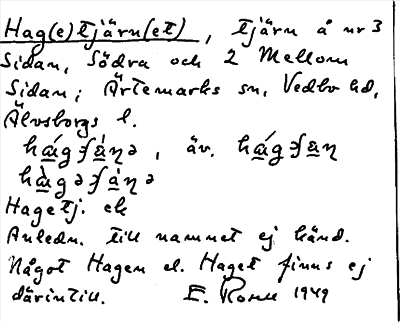 Hag(e)tjärn(et), tjärn å nr 3
Sidan, Södra och 2 Mellom
Sidan; Ärtemarks sn, Vedbo hd,
Älvsborgs l.
, äv.
Hagetj. ek
Anledn. till namnet ej känd.
Något Hagen el. Haget finns ej
därintill. E. Rosell 1949